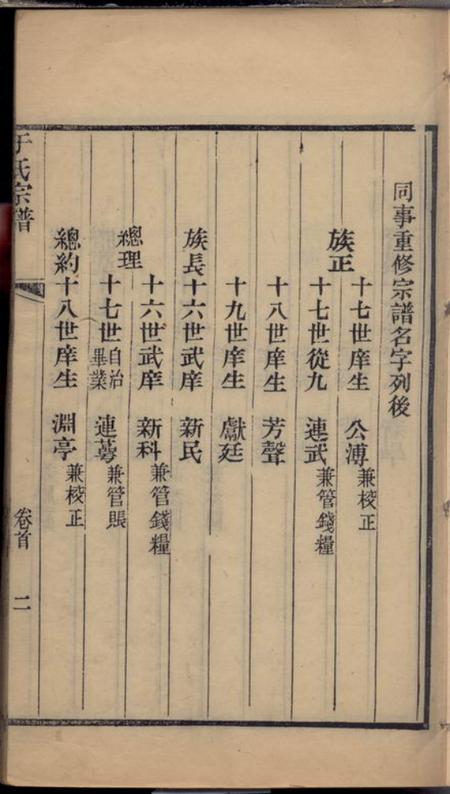 同事重修宗譜名字列後
族正
十七世庠生 公溥 兼校正
十七世從九 連武 兼管錢糧
十八世庠生 芳聲
十九世庠生 獻廷
族長十六世武庠 新民
總理
十六世武庠 新科 兼管錢糧
十七世自治畢業 連蕚 兼管賬
總約十八世庠生 淵亭 兼校正
于氏宗譜
卷首
二